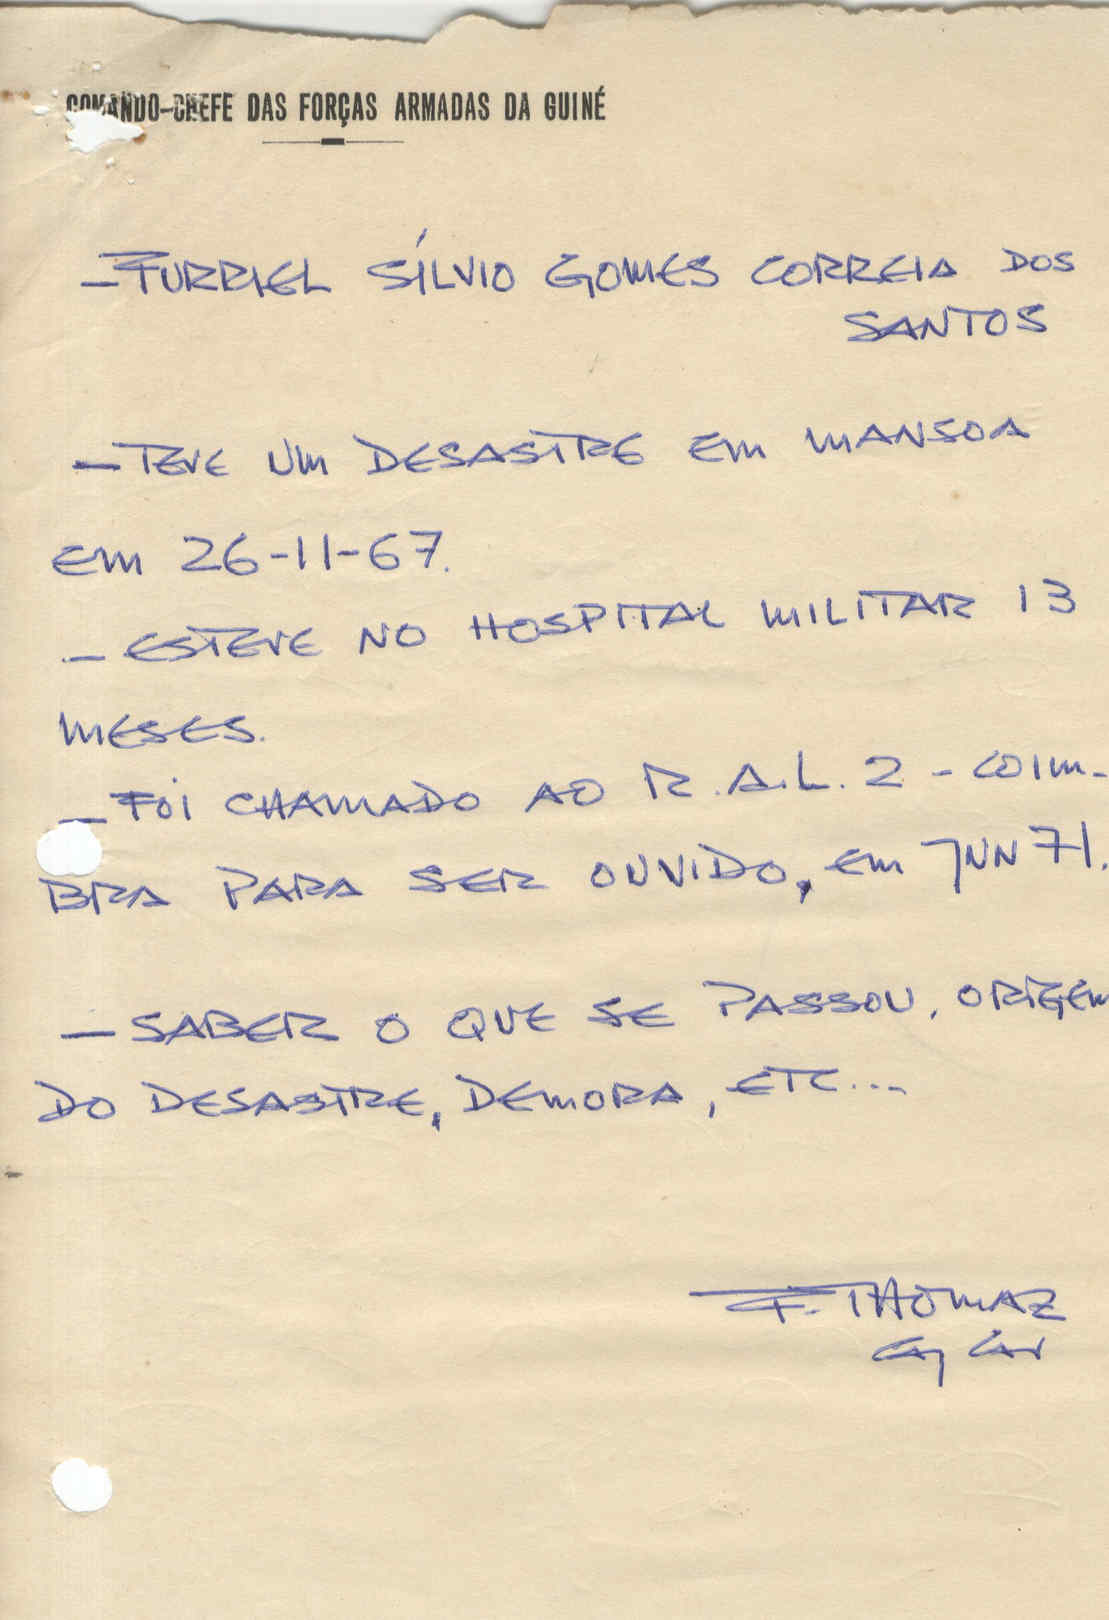 COMANDO-CHEFE DAS FORÇAS ARMADAS DA GUINÉ
- FURRIEL SÍLVIO GOMES CORREIA DOS
SANTOS
- TEVE UM DESASTRE EM MANSOA
EM 26-11-67.
- ESTEVE NO HOSPITAL MILITAR 13
MESES.
- FOI CHAMADO AO R.A.L. 2 - COIM-
BRA PARA SER OUVIDO, EM JUN 71.
- SABER O QUE SE PASSOU, ORIGEM
DO DESASTRE, DEMORA, ETC...
F. THOMAZ
Cap Cav